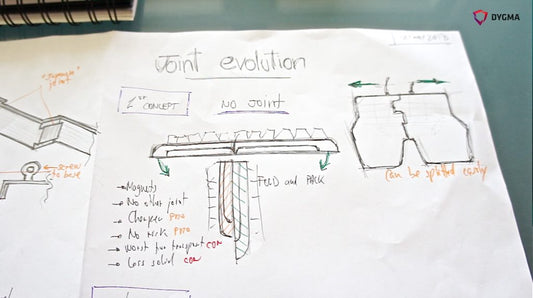 DYGMA
Joint evolution
"Japanese"
joint
1ST CONCEPT
NO JOINT
screw
to base
FOLD and PACK
can be splitted easily
→ Magnets
→ No other joint
→ Cheaper PRO
→ No risk PRO
→ Worst for transport CON
→ Less solid CON